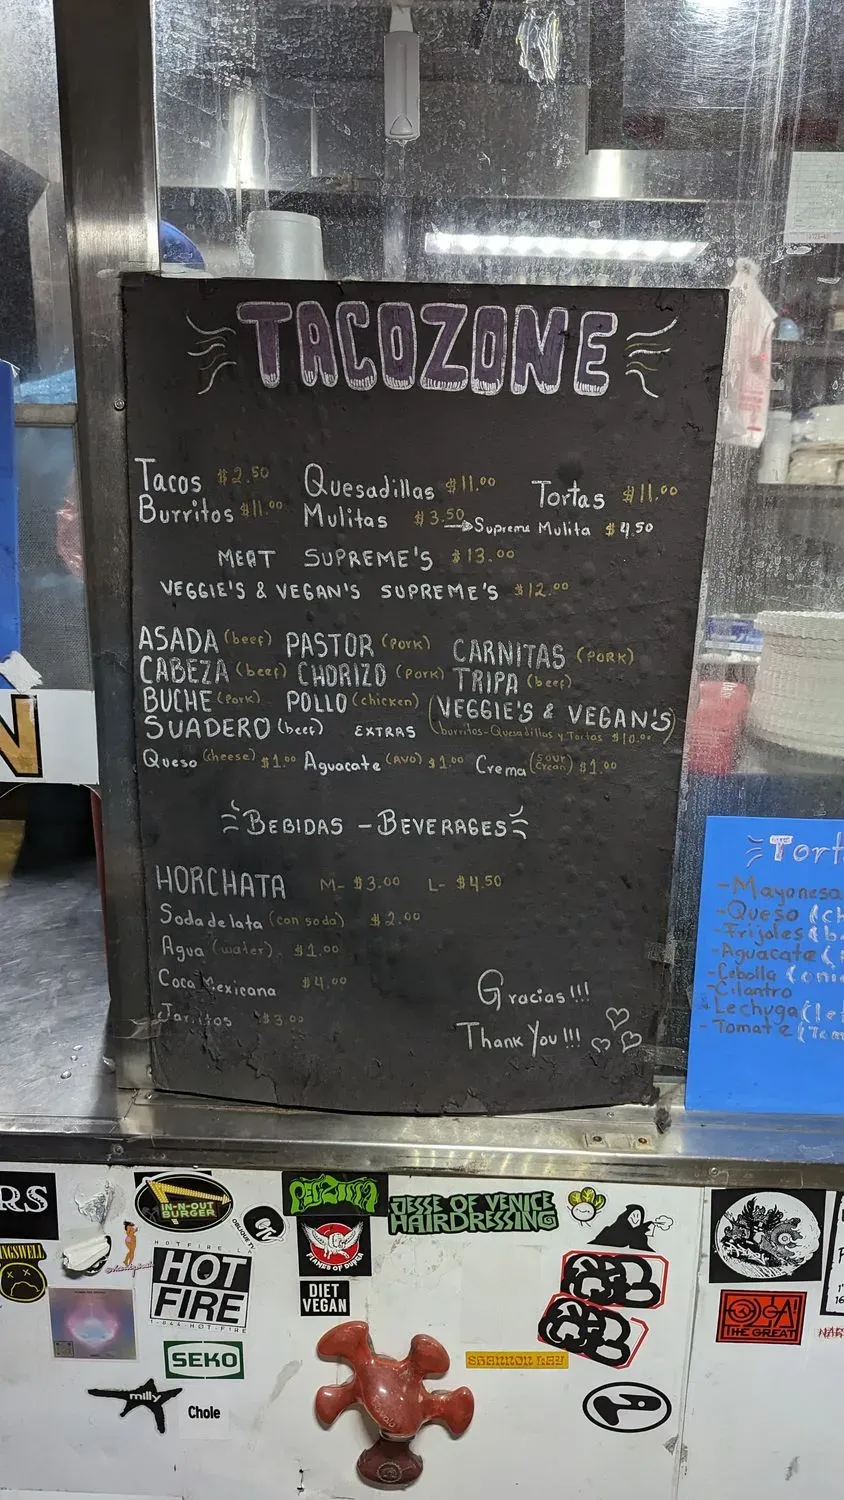 TACOZONE
Tacos $2.50 Quesadillas $11.00 Tortas $11.00
Burritos $11.00 Mulitas $3.50 → Supreme Mulita $4.50
MEAT SUPREME'S $13.00
VEGGIE'S & VEGAN'S SUPREME'S $12.00
ASADA (beef) PASTOR (Pork) CARNITAS (PORK)
CABEZA (beef) CHORIZO (Pork) TRIPA (beef)
BUCHE (Pork) POLLO (chicken) (VEGGIE'S & VEGAN'S)
SUADERO (beef) EXTRAS (burritos-Quesadillas y Tortas $10.00)
Queso (cheese) $1.00 Aguacate (AVO) $1.00 Crema (SOUR Cream) $1.00
BEBIDAS - BEVERAGES
HORCHATA M- $3.00 L- $4.50
Soda de lata (can soda) $2.00
Agua (water) $1.00
Coca Mexicana $4.00
Jarritos $3.00
Gracias!!!
Thank You!!!
Tort
-Mayonesa
-Queso (ch
-Frijoles (b
-Aguacate (
-Cebolla (oni
-Cilantro
-Lechuga (let
-Tomate (Tom
N
RS
IN-N-OUT
BURGER
JESSE OF VENICE
HAIRDRESSING
OBLIQUE TV
NGSWELL
HOTFIRE LA
HOT
FIRE
1-844-HOT-FIRE
FLAMES OF DURGA
DIET
VEGAN
THE GREAT
SEKO
SHANNON LAY
milly
Chole